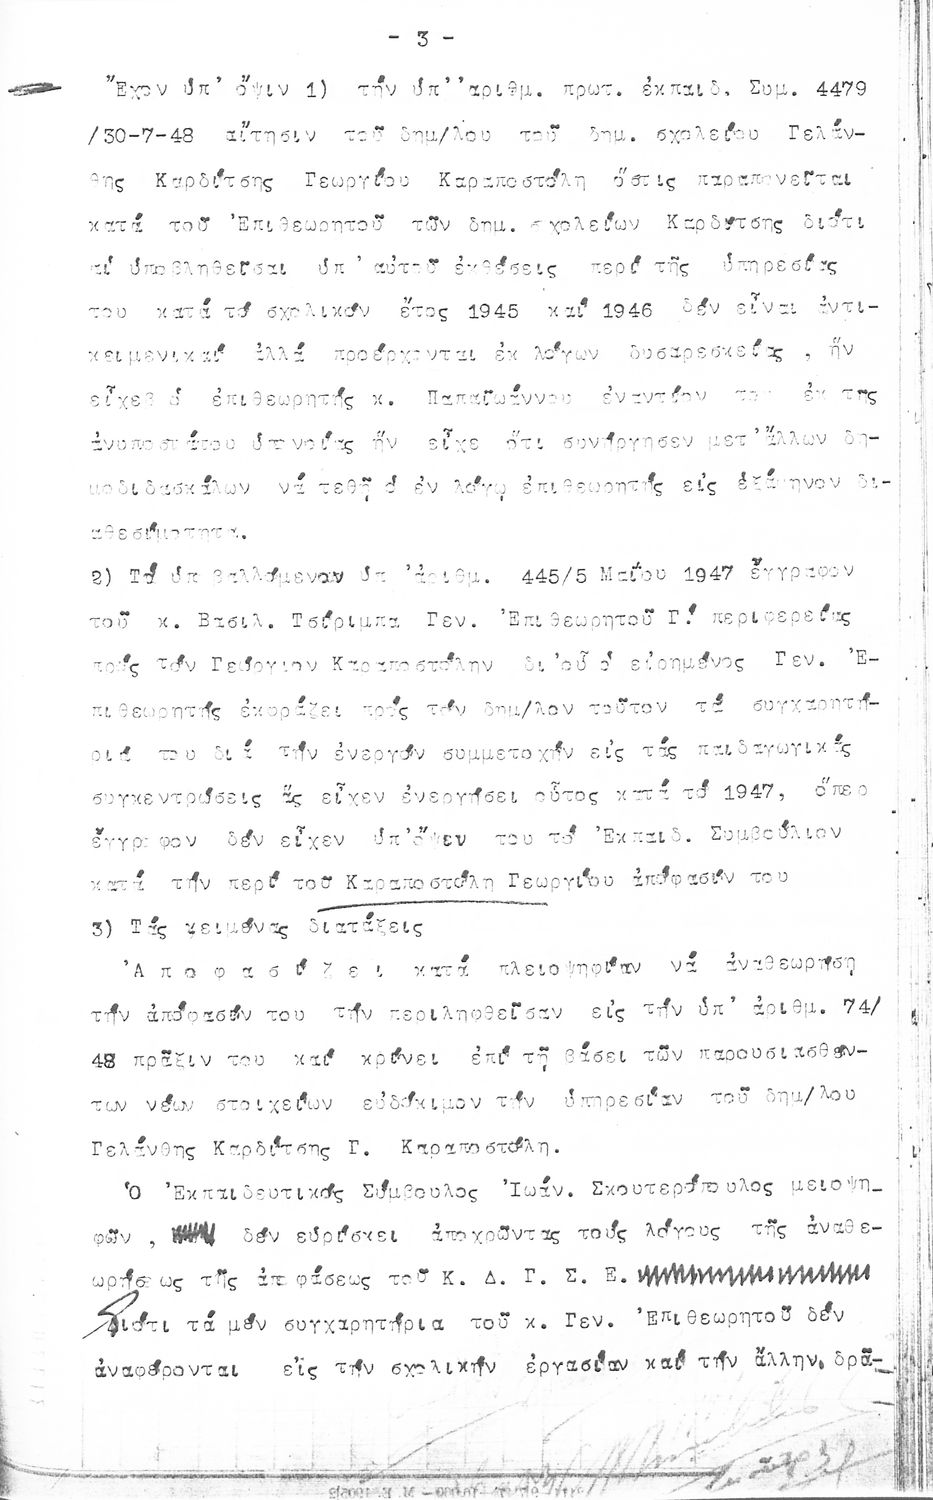 - 3 -
Ἔχον ὑπ' ὄψιν 1) τήν ὑπ' ἀριθμ. πρωτ. ἐκπαιδ. Συμ. 4479
/30-7-48 αἴτησιν τοῦ δημ/λου τοῦ δημ. σχολείου Γελάν-
θης Καρδίτσης Γεωργίου Καραποστόλη ὅστις παραπονεῖται
κατά τοῦ Ἐπιθεωρητοῦ τῶν δημ. σχολείων Καρδίτσης διότι
αἱ ὑποβληθεῖσαι ὑπ' αὐτοῦ ἐκθέσεις περί τῆς ὑπηρεσίας
του κατά τό σχολικόν ἔτος 1945 καί 1946 δέν εἶναι ἀντι-
κειμενικαί ἀλλά προέρχονται ἐκ λόγων δυσαρεσκείας , ἥν
εἶχεν ὁ ἐπιθεωρητής κ. Παπαϊωάννου ἐναντίον του ἐκ τῆς
ἀνυποστάτου ὑπονοίας ἥν εἶχε ὅτι συνήργησεν μετ' ἄλλων δη-
μοδιδασκάλων νά τεθῇ ὁ ἐν λόγῳ ἐπιθεωρητής εἰς ἑξάμηνον δι-
αθεσιμότητα.
2) Τό ὑποβαλλόμενον ὑπ' ἀριθμ. 445/5 Μαΐου 1947 ἔγγραφον
τοῦ κ. Βασιλ. Τσίριμπα Γεν. Ἐπιθεωρητοῦ Γ! περιφερείας
πρός τόν Γεώργιον Καραποστόλην δι' οὗ ὁ εἰρημένος Γεν. Ἐ-
πιθεωρητής ἐκφράζει πρός τόν δημ/λον τοῦτον τά συγχαρητή-
ριά του διά τήν ἐνεργόν συμμετοχήν εἰς τάς παιδαγωγικάς
συγκεντρώσεις ἅς εἶχεν ἐνεργήσει οὗτος κατά τό 1947, ὅπερ
ἔγγραφον δέν εἶχεν ὑπ' ὄψιν του τό Ἐκπαιδ. Συμβούλιον
κατά τήν περί τοῦ Καραποστόλη Γεωργίου ἀπόφασίν του
3) Τάς κειμένας διατάξεις
Ἀ π ο φ α σ ί ζ ε ι κατά πλειοψηφίαν νά ἀναθεωρήσῃ
τήν ἀπόφασίν του τήν περιληφθεῖσαν εἰς τήν ὑπ' ἀριθμ. 74/
48 πρᾶξιν του καί κρίνει ἐπί τῇ βάσει τῶν παρουσιασθέν-
των νέων στοιχείων εὐδόκιμον τήν ὑπηρεσίαν τοῦ δημ/λου
Γελάνθης Καρδίτσης Γ. Καραποστόλη.
Ὁ Ἐκπαιδευτικός Σύμβουλος Ἰωάν. Σκουτερόπουλος μειοψη_
φῶν , δέν εὑρίσκει ἀποχρῶντας τούς λόγους τῆς ἀναθε-
ωρήσεως τῆς ἀποφάσεως τοῦ Κ. Δ. Γ. Σ. Ε.
Διότι τά μέν συγχαρητήρια τοῦ κ. Γεν. Ἐπιθεωρητοῦ δέν
ἀναφέρονται εἰς τήν σχολικήν ἐργασίαν καί τήν ἄλλην δρᾶ-